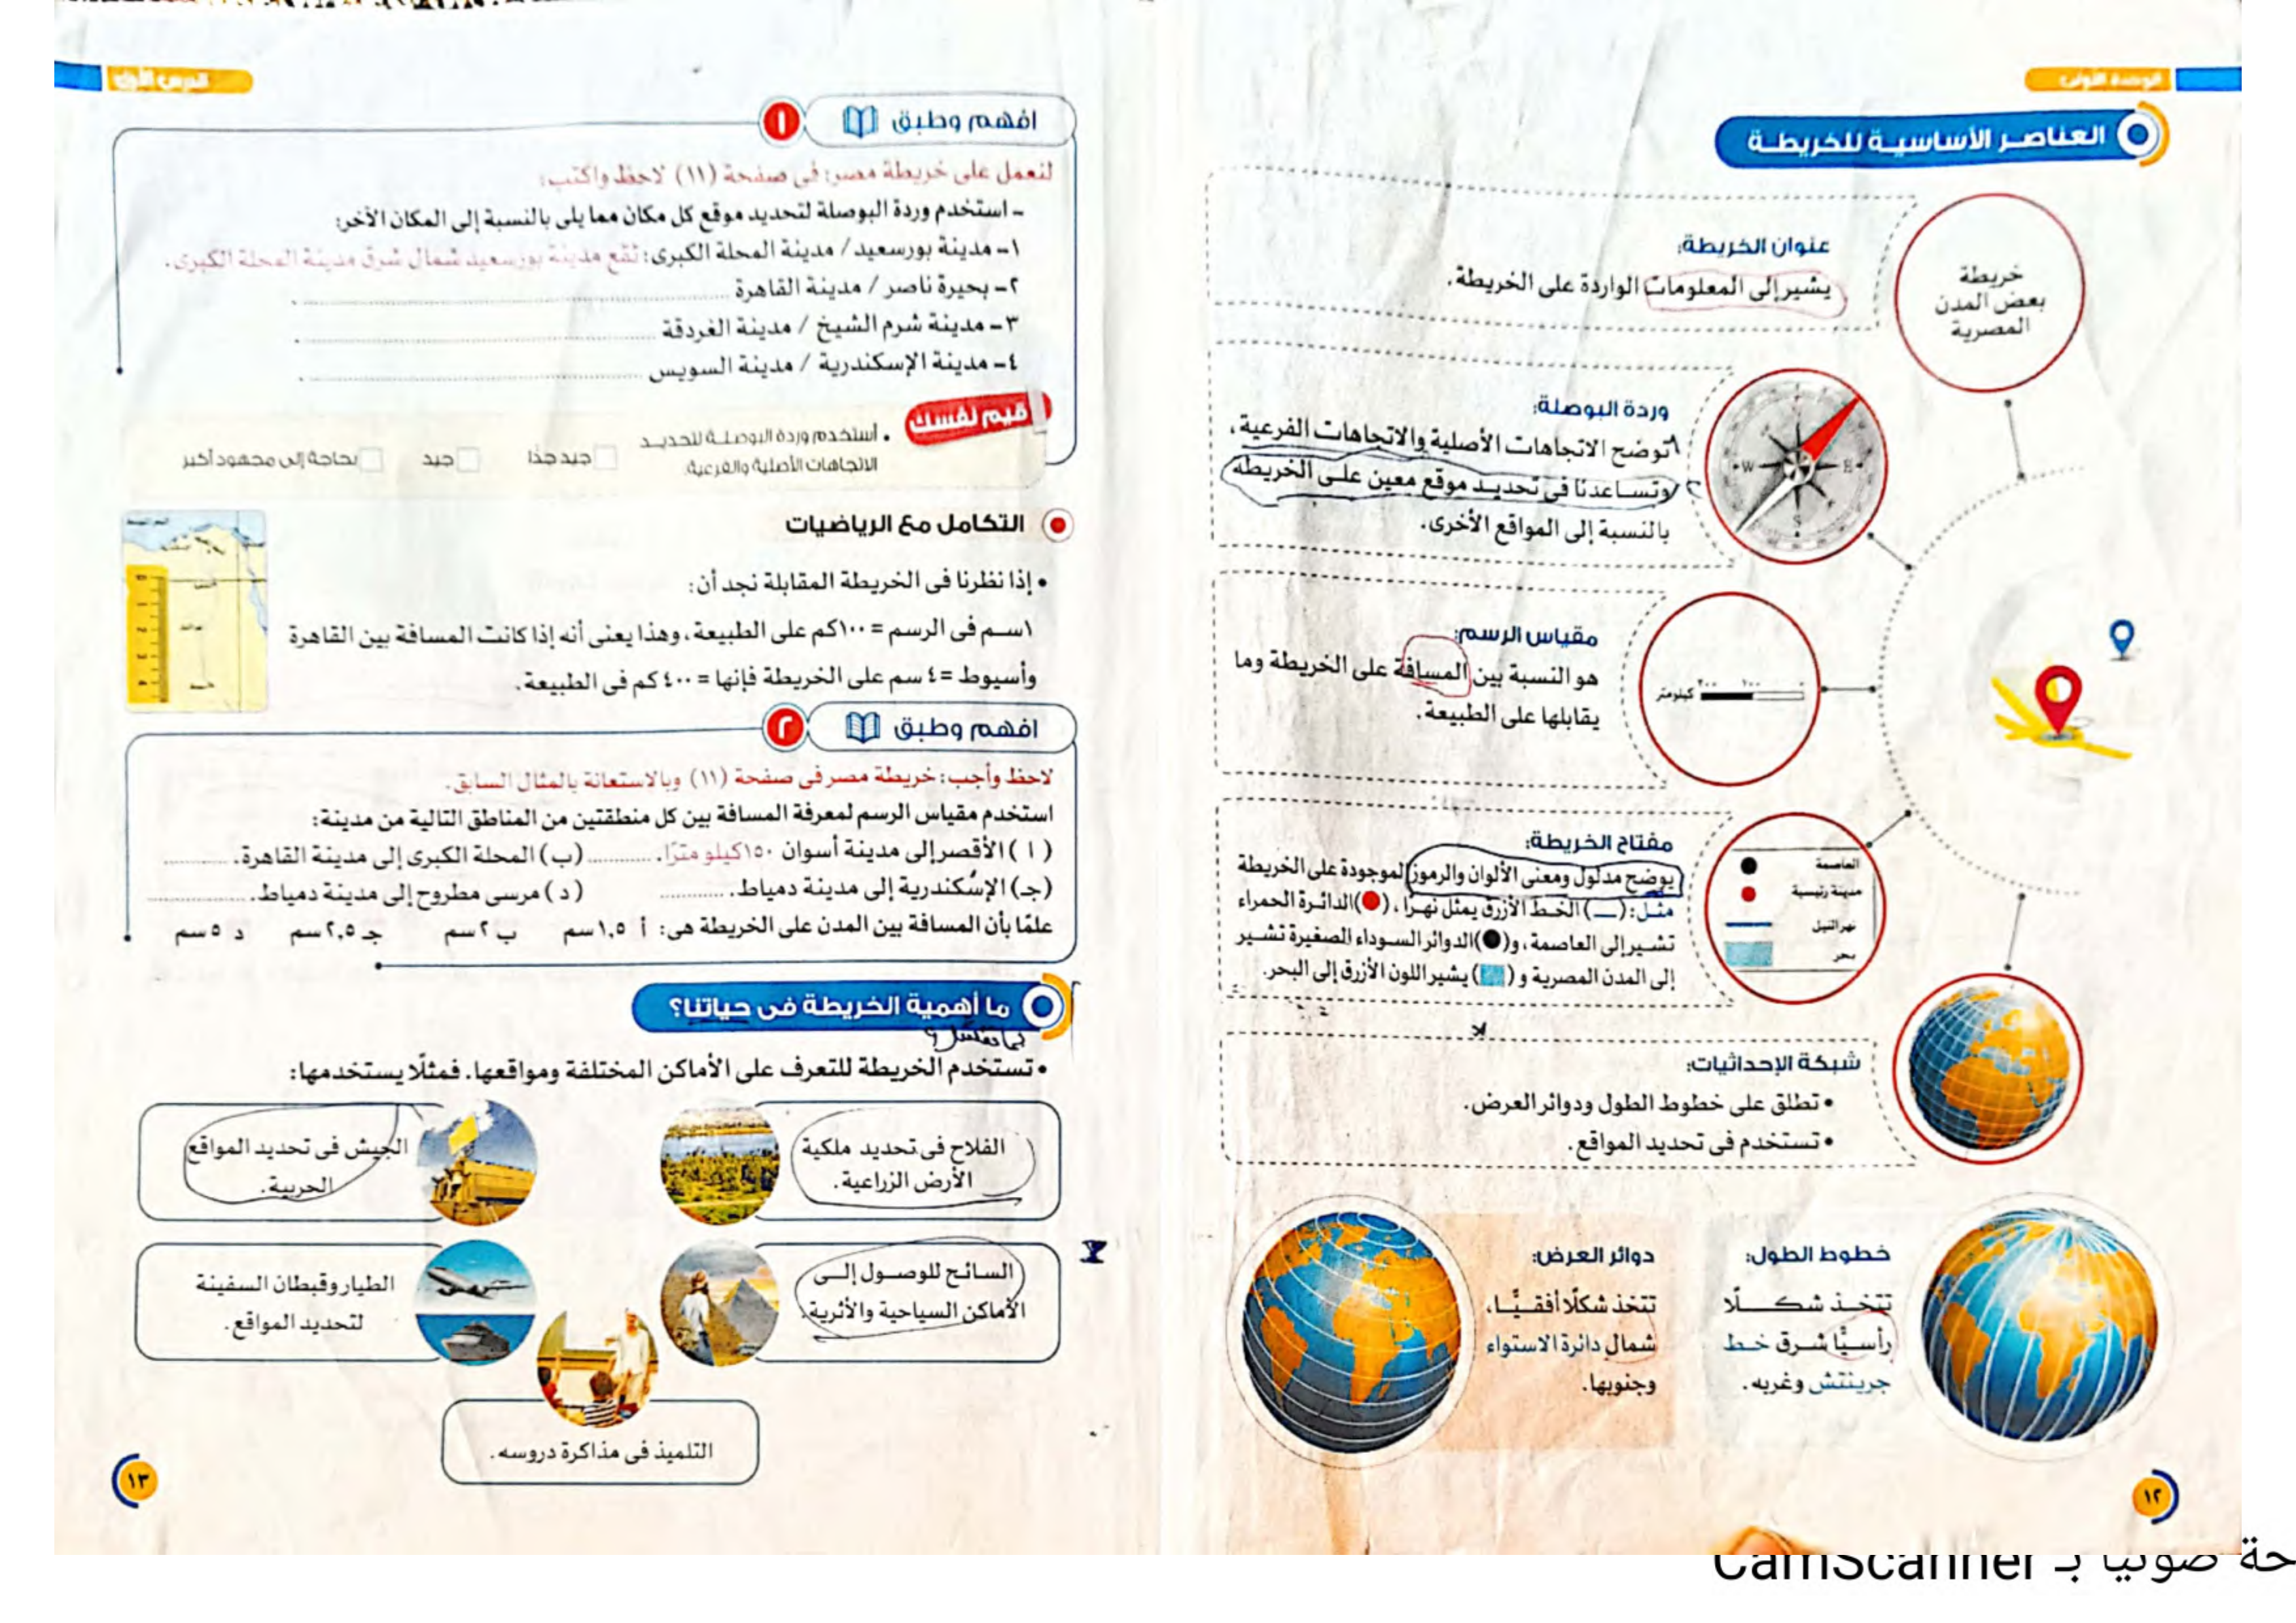 الوحدة الأولى
العناصر الأساسية للخريطة
خريطة
بعض المدن
المصرية
عنوان الخريطة:
يشير إلى المعلومات الواردة على الخريطة.
وردة البوصلة:
توضح الاتجاهات الأصلية والاتجاهات الفرعية،
وتساعدنا فى تحديد موقع معين على الخريطة
بالنسبة إلى المواقع الأخرى.
W E S
مقياس الرسم:
هو النسبة بين المسافة على الخريطة وما
يقابلها على الطبيعة.
٠ ١٠٠ ٢٠٠ كيلومتر
مفتاح الخريطة:
يوضح مدلول ومعنى الألوان والرموز الموجودة على الخريطة
مثل: (ــ) الخط الأزرق يمثل نهرًا، (●) الدائرة الحمراء
تشير إلى العاصمة، و(●) الدوائر السوداء الصغيرة تشير
إلى المدن المصرية و ( ) يشير اللون الأزرق إلى البحر.
العاصمة
مدينة رئيسية
نهر النيل
بحر
شبكة الإحداثيات:
• تطلق على خطوط الطول ودوائر العرض.
• تستخدم فى تحديد المواقع.
خطوط الطول:
تتخذ شكلًا
رأسيًّا شرق خط
جرينتش وغربه.
دوائر العرض:
تتخذ شكلًا أفقيًّا،
شمال دائرة الاستواء
وجنوبها.
١٢
الدرس الأول
افهم وطبق ١
لنعمل على خريطة مصر: فى صفحة (١١) لاحظ واكتب:
- استخدم وردة البوصلة لتحديد موقع كل مكان مما يلى بالنسبة إلى المكان الآخر:
١- مدينة بورسعيد / مدينة المحلة الكبرى: تقع مدينة بورسعيد شمال شرق مدينة المحلة الكبرى.
٢- بحيرة ناصر / مدينة القاهرة
٣- مدينة شرم الشيخ / مدينة الغردقة
٤- مدينة الإسكندرية / مدينة السويس
قيم نفسك
• أستخدم وردة البوصلة لتحديد
الاتجاهات الأصلية والفرعية.
جيد جدًا
جيد
بحاجة إلى مجهود أكبر
التكامل مع الرياضيات
• إذا نظرنا فى الخريطة المقابلة نجد أن:
١سم فى الرسم = ١٠٠كم على الطبيعة، وهذا يعنى أنه إذا كانت المسافة بين القاهرة
وأسيوط = ٤ سم على الخريطة فإنها = ٤٠٠ كم فى الطبيعة.
افهم وطبق ٢
لاحظ وأجب: خريطة مصر فى صفحة (١١) وبالاستعانة بالمثال السابق.
استخدم مقياس الرسم لمعرفة المسافة بين كل منطقتين من المناطق التالية من مدينة:
( أ ) الأقصر إلى مدينة أسوان ١٥٠كيلو مترًا. (ب) المحلة الكبرى إلى مدينة القاهرة.
(جـ) الإسكندرية إلى مدينة دمياط. ( د ) مرسى مطروح إلى مدينة دمياط.
علمًا بأن المسافة بين المدن على الخريطة هى: أ ١,٥سم ب ٢سم جـ ٢,٥سم د ٥سم
ما أهمية الخريطة فى حياتنا؟
• تستخدم الخريطة للتعرف على الأماكن المختلفة ومواقعها. فمثلًا يستخدمها:
الفلاح فى تحديد ملكية
الأرض الزراعية.
الجيش فى تحديد المواقع
الحربية.
السائح للوصول إلى
الأماكن السياحية والأثرية.
الطيار وقبطان السفينة
لتحديد المواقع.
التلميذ فى مذاكرة دروسه.
١٣
حة ضوئيا بـ CamScanner